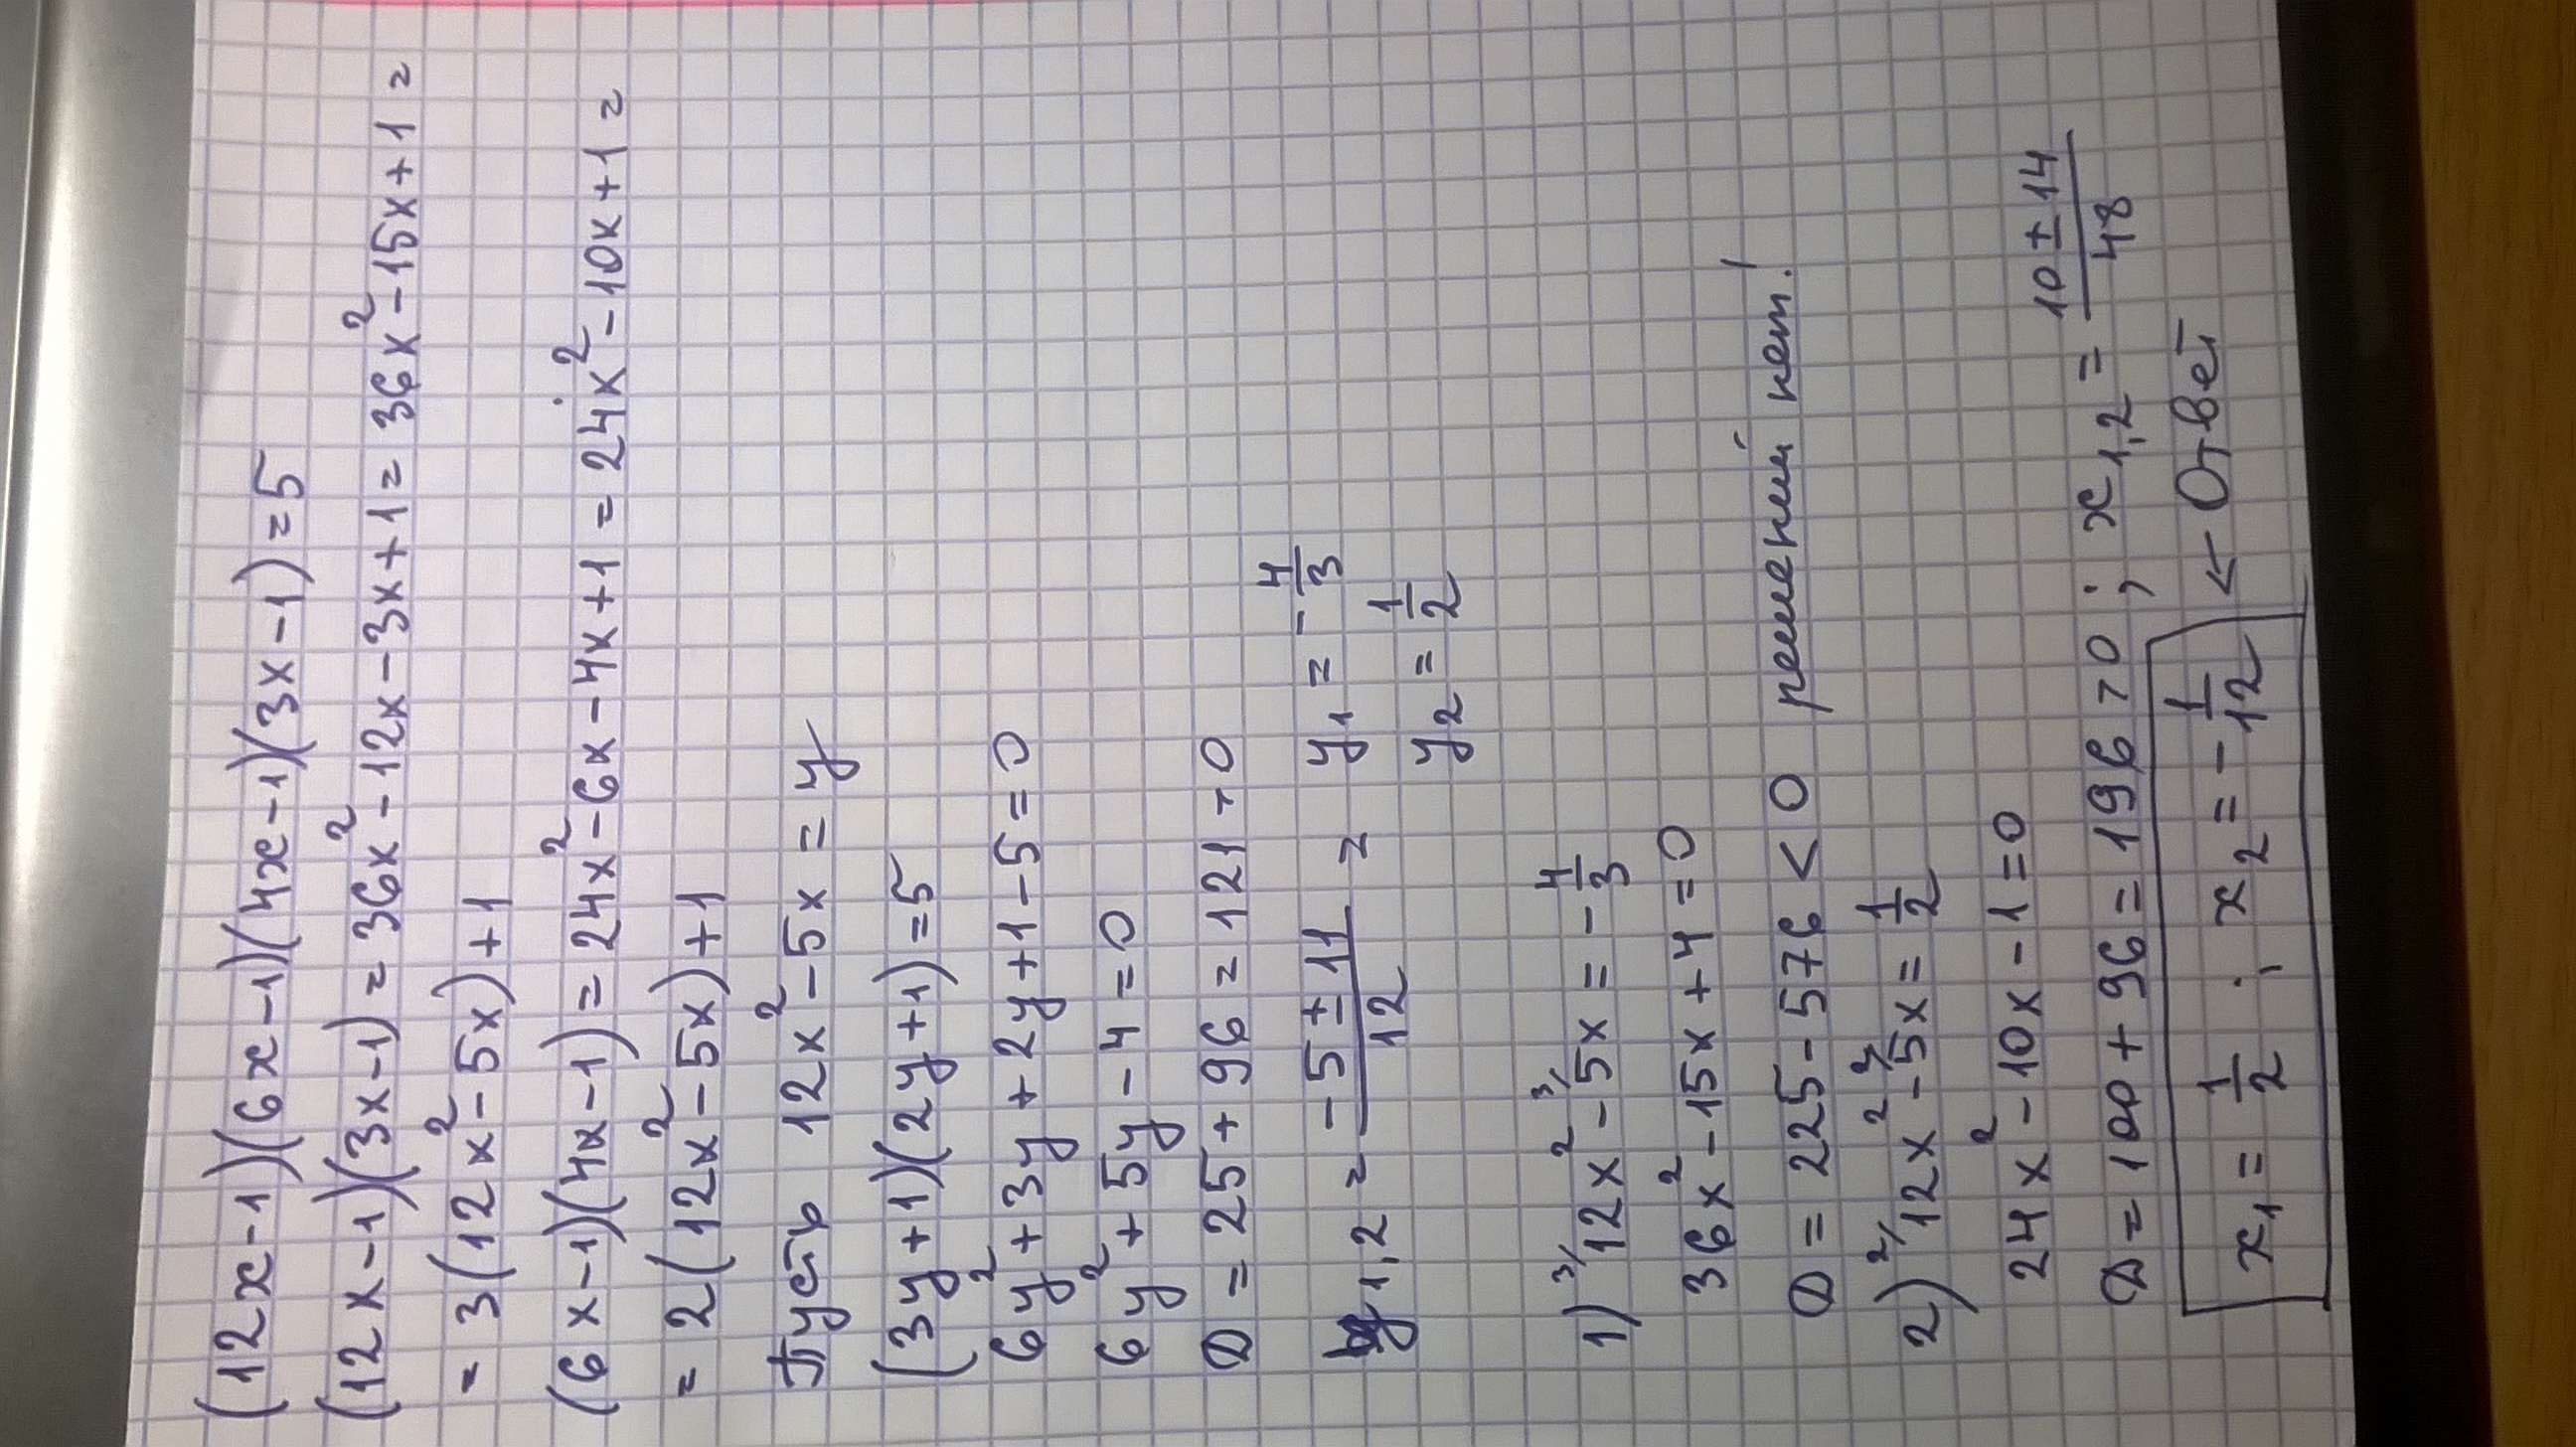 (12x-1)(6x-1)(4x-1)(3x-1)=5
(12x-1)(3x-1)=36x²-12x-3x+1=36x²-15x+1=
=3(12x²-5x)+1
(6x-1)(4x-1)=24x²-6x-4x+1=24x²-10x+1=
=2(12x²-5x)+1
Пусть 12x²-5x=y
(3y+1)(2y+1)=5
6y²+3y+2y+1-5=0
6y²+5y-4=0
D=25+96=121>0
y1,2 = (-5±11)/12 = y1 = -4/3
y2 = 1/2
1) 3/ 12x² - 3/ 5x = -4/3
36x²-15x+4=0
D=225-576<0 решений нет!
2) 2/ 12x² - 2/ 5x = 1/2
24x²-10x-1=0
D=100+96=196>0; x1,2 = (10±14)/48
x1 = 1/2 ; x2 = -1/12 ← Ответ